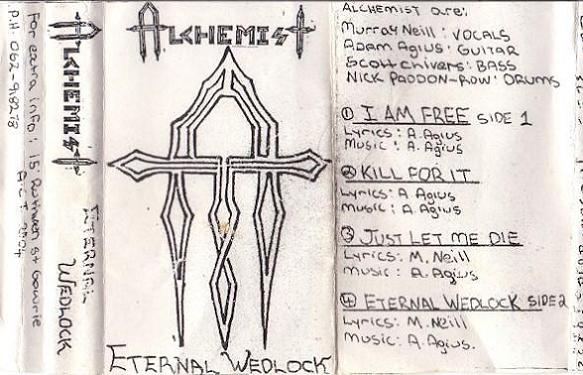 For extra info: 15 Ruthven st Gowrie
A.C.T 2904
P.H: 062-918278
ALCHEMIST
ETERNAL
WEDLOCK
ALCHEMIST
ETERNAL WEDLOCK
ALCHEMIST are:
Murray Neill: VOCALS
ADAM AGIUS: GUITAR
Scott Chivers: BASS
NICK PADDON-ROW: DRUMS
① I AM FREE SIDE 1
Lyrics: A. Agius
Music: A. Agius
② KILL FOR IT
Lyrics: A Agius
Music: A. Agius
③ JUST LET ME DIE
Lyrics: M. Neill
Music: A. Agius
④ ETERNAL WEDLOCK SIDE 2
Lyrics: M. Neill
Music: A. Agius.